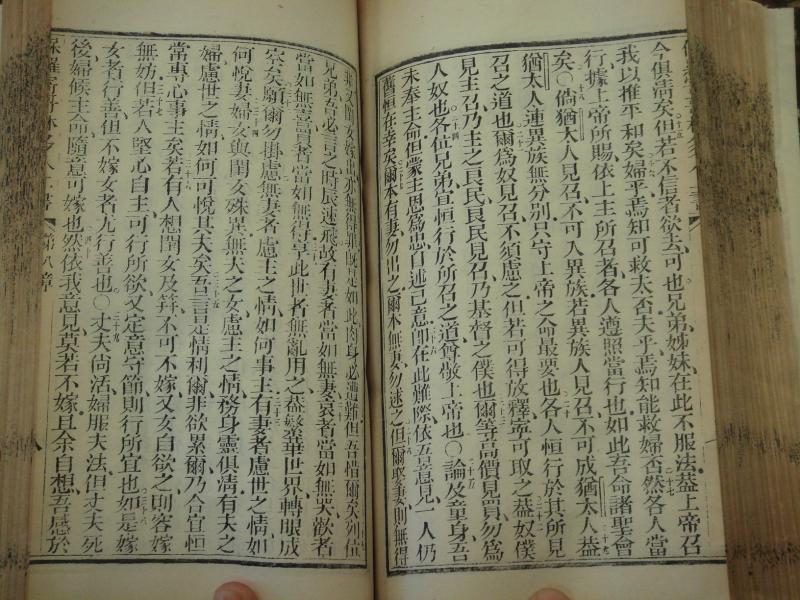 今俱清矣但若不信者欲去可也兄弟姊妹在此不服法蓋上帝召
我以推平和矣婦乎焉知可救夫否夫乎焉知能救婦否然各人當
行據上帝所賜依上主所召者各人遵照當行也如此吾命諸聖會
矣〇倘猶太人見召不可入異族若異族人見召不可成猶太人蓋
猶太人連異族無分別只守上帝之命最要也各人恒行於其所見
召之道也爾為奴見召不須慮之但若可得放釋寧可取之蓋奴僕
見主召乃主之良民良民見召乃基督之僕也爾等高價見買勿為
人奴也各位兄弟宜恒行於所召之道尊敬上帝也〇論及童身吾
未奉主命但蒙主恩為忠自述己意卽在此難際依吾意見一人仍
舊恒在幸矣爾本有妻勿出之爾本無妻勿逑之但爾娶妻則無得
罪又閨女嫁出亦無得罪旣是如此肉身必遭難但吾惜爾矣列位
兄弟吾必言之時辰速飛故有妻者當如無妻哀者當如無哭歡者
當如無喜買者當如無得享此世者無亂用之蓋繁華世界轉眼成
空矣願爾勿掛慮無妻者慮主之情如何事主有妻者慮世之情如
何悅妻婦女與閨女殊異無夫之女慮主之情務身靈俱清有夫之
婦慮世之情如何可悅其夫矣吾言是情利爾非欲累爾乃合宜恒
常專心事主矣若有人想閨女及笄不可不嫁又女自欲之則容嫁
無妨但若人堅心自主可行所欲又定意守節則行所宜也如是嫁
女者行善但不嫁女者尤行善也〇丈夫尚活婦服夫法但丈夫死
後婦候主命隨意可嫁也然依我意見莫若不嫁且余自想吾感於
第八章